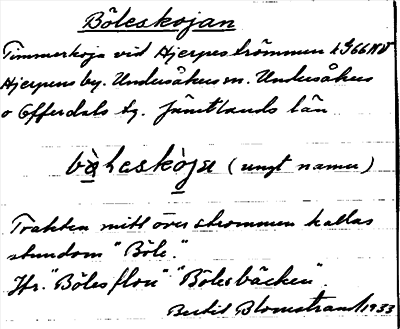 Böleskojan
Timmerkoja vid Hjerpeströmmen
Hjerpens by. Undersåkers sn. Undersåkers
o Offerdals tg. Jämtlands län
(ungt namn)
Trakten mitt över strömmen kallas
stundom "Böle".
Jfr. "Bölesflon" "Bölesbäcken"
Bertil Blomstrand 1933